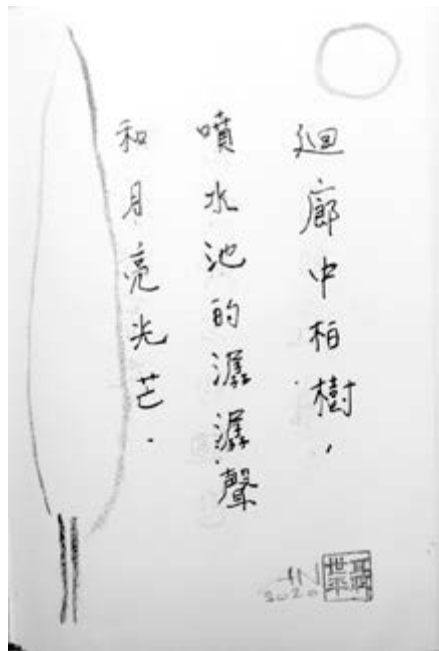 迴廊中柏樹，
噴水池的潺潺聲
和月亮光芒．
2020
世平